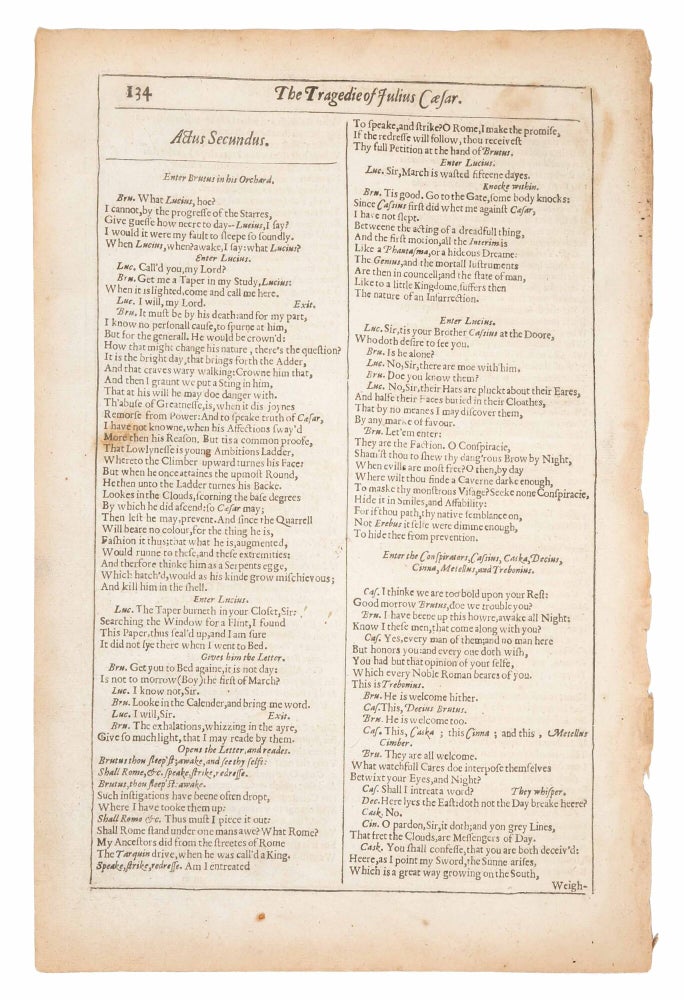 134
The Tragedie of Julius Cæsar.
Actus Secundus.
Enter Brutus in his Orchard.
Bru. What Lucius, hoe?
I cannot, by the progresse of the Starres,
Give guesse how neere to day-- Lucius, I say?
I would it were my fault to sleepe so soundly.
When Lucius, when? awake, I say: what Lucius?
Enter Lucius.
Luc. Call'd you, my Lord?
Bru. Get me a Taper in my Study, Lucius:
When it is lighted, come and call me here.
Luc. I will, my Lord. Exit.
Bru. It must be by his death: and for my part,
I know no personall cause, to spurne at him,
But for the generall. He would be crown'd:
How that might change his nature, there's the question?
It is the bright day, that brings forth the Adder,
And that craves wary walking: Crowne him that,
And then I graunt we put a Sting in him,
That at his will he may doe danger with.
Th'abuse of Greatnesse, is, when it dis joynes
Remorse from Power: And to speake truth of Cæsar,
I have not knowne, when his Affections sway'd
More then his Reason. But tis a common proofe,
That Lowlynesse is young Ambitions Ladder,
Whereto the Climber upward turnes his Face:
But when he once attaines the upmost Round,
He then unto the Ladder turnes his Backe.
Lookes in the Clouds, scorning the base degrees
By which he did ascend: so Cæsar may;
Then lest he may, prevent. And since the Quarrell
Will beare no colour, for the thing he is,
Fashion it thus; that what he is, augmented,
Would runne to these, and these extremities:
And therfore thinke him as a Serpents egge,
Which hatch'd, would as his kinde grow mischievous;
And kill him in the shell.
Enter Lucius.
Luc. The Taper burneth in your Closet, Sir:
Searching the Window for a Flint, I found
This Paper, thus seal'd up, and I am sure
It did not lye there when I went to Bed.
Gives him the Letter.
Bru. Get you to Bed againe, it is not day:
Is not to morrow (Boy) the first of March?
Luc. I know not, Sir.
Bru. Looke in the Calender, and bring me word.
Luc. I will, Sir. Exit.
Bru. The exhalations, whizzing in the ayre,
Give so much light, that I may reade by them.
Opens the Letter, and reades.
Brutus thou sleep'st; awake, and see thy selfe:
Shall Rome, &c. speake, strike, redresse.
Brutus, thou sleep'st: awake.
Such instigations have beene often dropt,
Where I have tooke them up:
Shall Rome &c. Thus must I piece it out:
Shall Rome stand under one mans awe? What Rome?
My Ancestors did from the streetes of Rome
The Tarquin drive, when he was call'd a King.
Speake, strike, redresse. Am I entreated
To speake, and strike? O Rome, I make the promise,
If the redresse will follow, thou receivest
Thy full Petition at the hand of Brutus.
Enter Lucius.
Luc. Sir, March is wasted fifteene dayes.
Knocke within.
Bru. Tis good. Go to the Gate, some body knocks:
Since Cassius first did whet me against Cæsar,
I have not slept.
Betweene the acting of a dreadfull thing,
And the first motion, all the Interim is
Like a Phantasma, or a hideous Dreame:
The Genius, and the mortall Instruments
Are then in councell; and the state of man,
Like to a little Kingdome, suffers then
The nature of an Insurrection.
Enter Lucius.
Luc. Sir, tis your Brother Cassius at the Doore,
Who doth desire to see you.
Bru. Is he alone?
Luc. No, Sir, there are moe with him,
Bru. Doe you know them?
Luc. No, Sir, their Hats are pluckt about their Eares,
And halfe their Faces buried in their Cloathes,
That by no meanes I may discover them,
By any marke of favour.
Bru. Let'em enter:
They are the Faction. O Conspiracie,
Sham'st thou to shew thy dang'rous Brow by Night,
When evills are most free? O then, by day
Where wilt thou finde a Caverne darke enough,
To maske thy monstrous Visage? Seeke none Conspiracie,
Hide it in Smiles, and Affability:
For if thou path, thy native semblance on,
Not Erebus it selfe were dimme enough,
To hide thee from prevention.
Enter the Conspirators, Cassius, Caska, Decius,
Cinna, Metellus, and Trebonius.
Cas. I thinke we are too bold upon your Rest:
Good morrow Brutus, doe we trouble you?
Bru. I have beene up this howre, awake all Night:
Know I these men, that come along with you?
Cas. Yes, every man of them; and no man here
But honors you: and every one doth wish,
You had but that opinion of your selfe,
Which every Noble Roman beares of you.
This is Trebonius.
Bru. He is welcome hither.
Cas. This, Decius Brutus.
Bru. He is welcome too.
Cas. This, Caska; this Cinna; and this, Metellus
Cimber.
Bru. They are all welcome.
What watchfull Cares doe interpose themselves
Betwixt your Eyes, and Night?
Cas. Shall I intreat a word? They whisper.
Dec. Here lyes the East: doth not the Day breake heere?
Cask. No.
Cin. O pardon, Sir, it doth; and yon grey Lines,
That fret the Clouds, are Messengers of Day.
Cask. You shall confesse, that you are both deceiv'd:
Heere, as I point my Sword, the Sunne arises,
Which is a great way growing on the South,
Weigh-